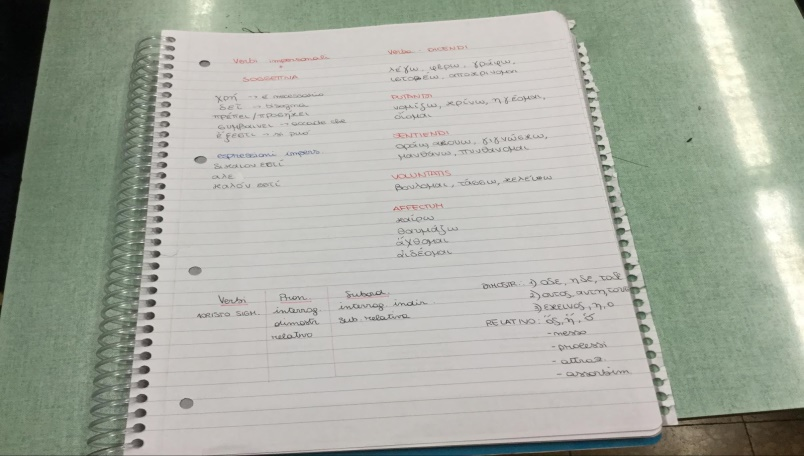 Verbi impersonali
+
SOGGETTIVA
χρή → è necessario
δεῖ → bisogna
πρέπει/προσήκει
συμβαίνει → accade che
ἔξεστι → si può
espressioni impers
δίκαιον ἐστί
καλόν ἐστί
Verba DICENDI
λέγω, φέρω, γράφω,
αποκρινομαι
PUTANDI
νομίζω, κρίνω, ηγέομαι,
οἴομαι
SENTIENDI
οράω, ακουω, γιγνώσκω,
μανθάνω, πυνθανομαι
VOLUNTATIS
βουλομαι, τάσσω, κελεύω
AFFECTUM
χαίρω
θαυμάζω
ἄχθομαι
αἰδέομαι
Verbi
AORISTO SIGM.
Pron.
interrog.
dimostr
relativo
Subord.
interrog. indir.
sub. relativa
DIMOSTR.: 1) οδε, ηδε, τοδε
2) ουτος, αυτη, τουτο
3) εκεινος, η, ο
RELATIVO: ὅς, ἥ, ὅ
- nesso
- prolessi
- attraz.
- assorbim.